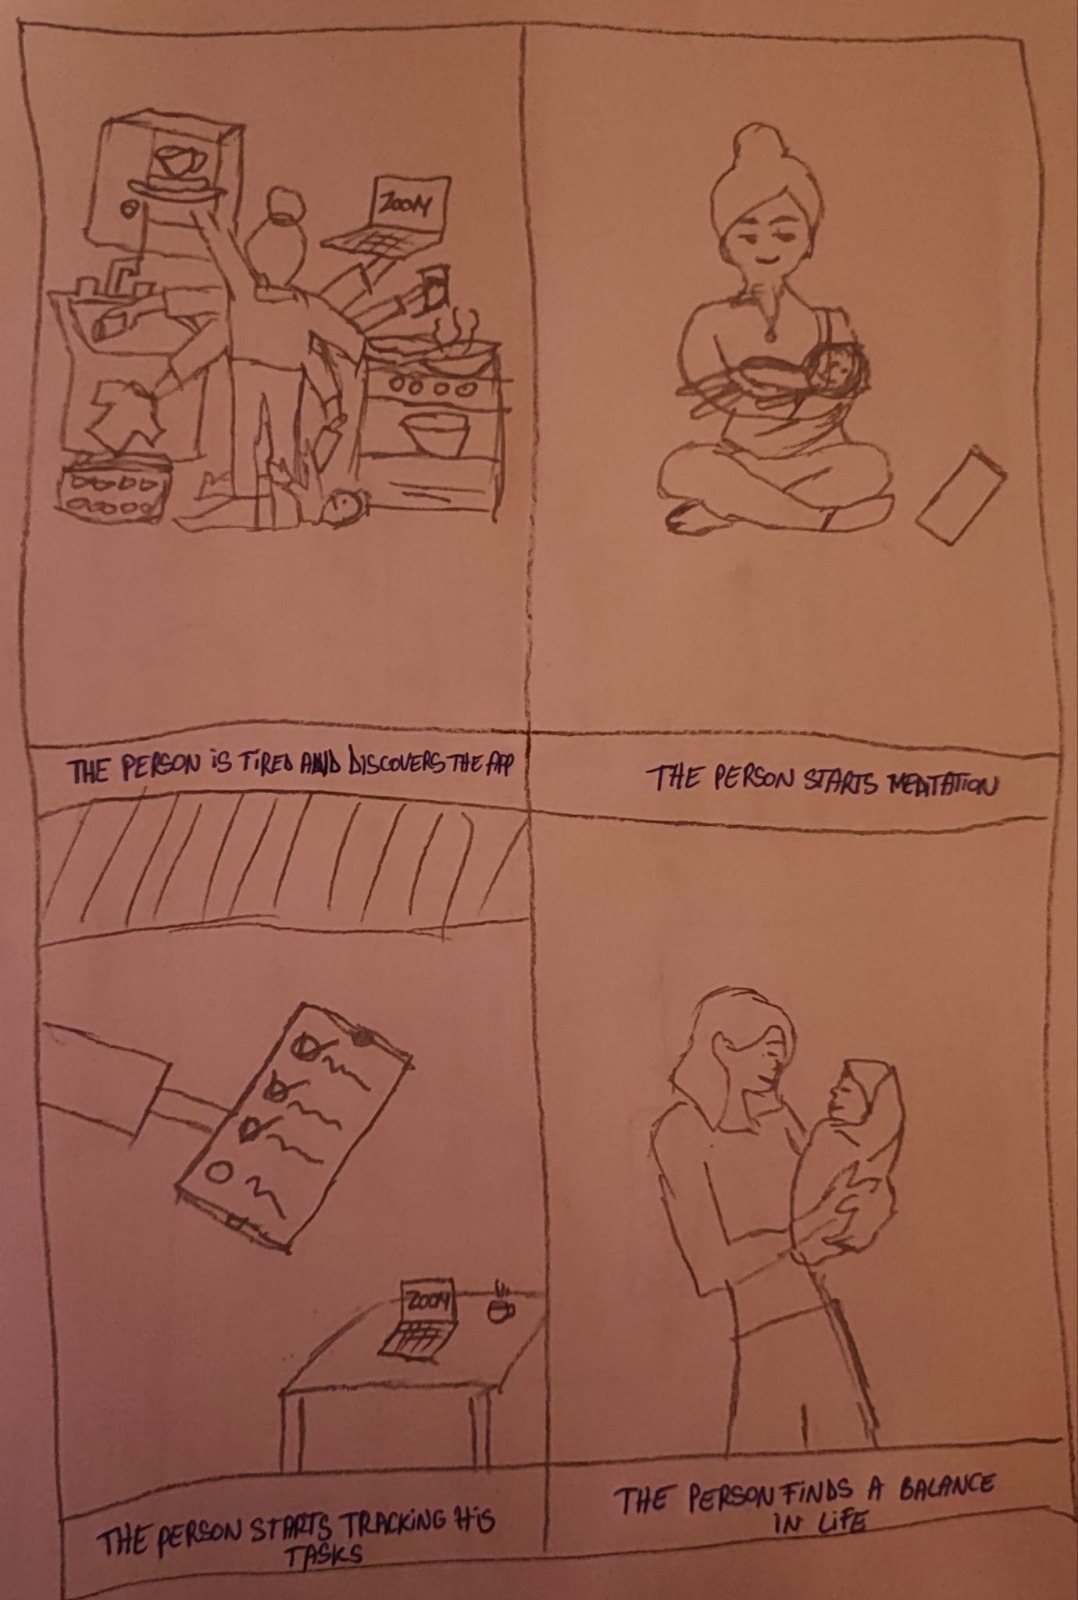 ZOOM
THE PERSON IS TIRED AND DISCOVERS THE APP
THE PERSON STARTS MEDITATION
ZOOM
THE PERSON STARTS TRACKING HIS
TASKS
THE PERSON FINDS A BALANCE
IN LIFE